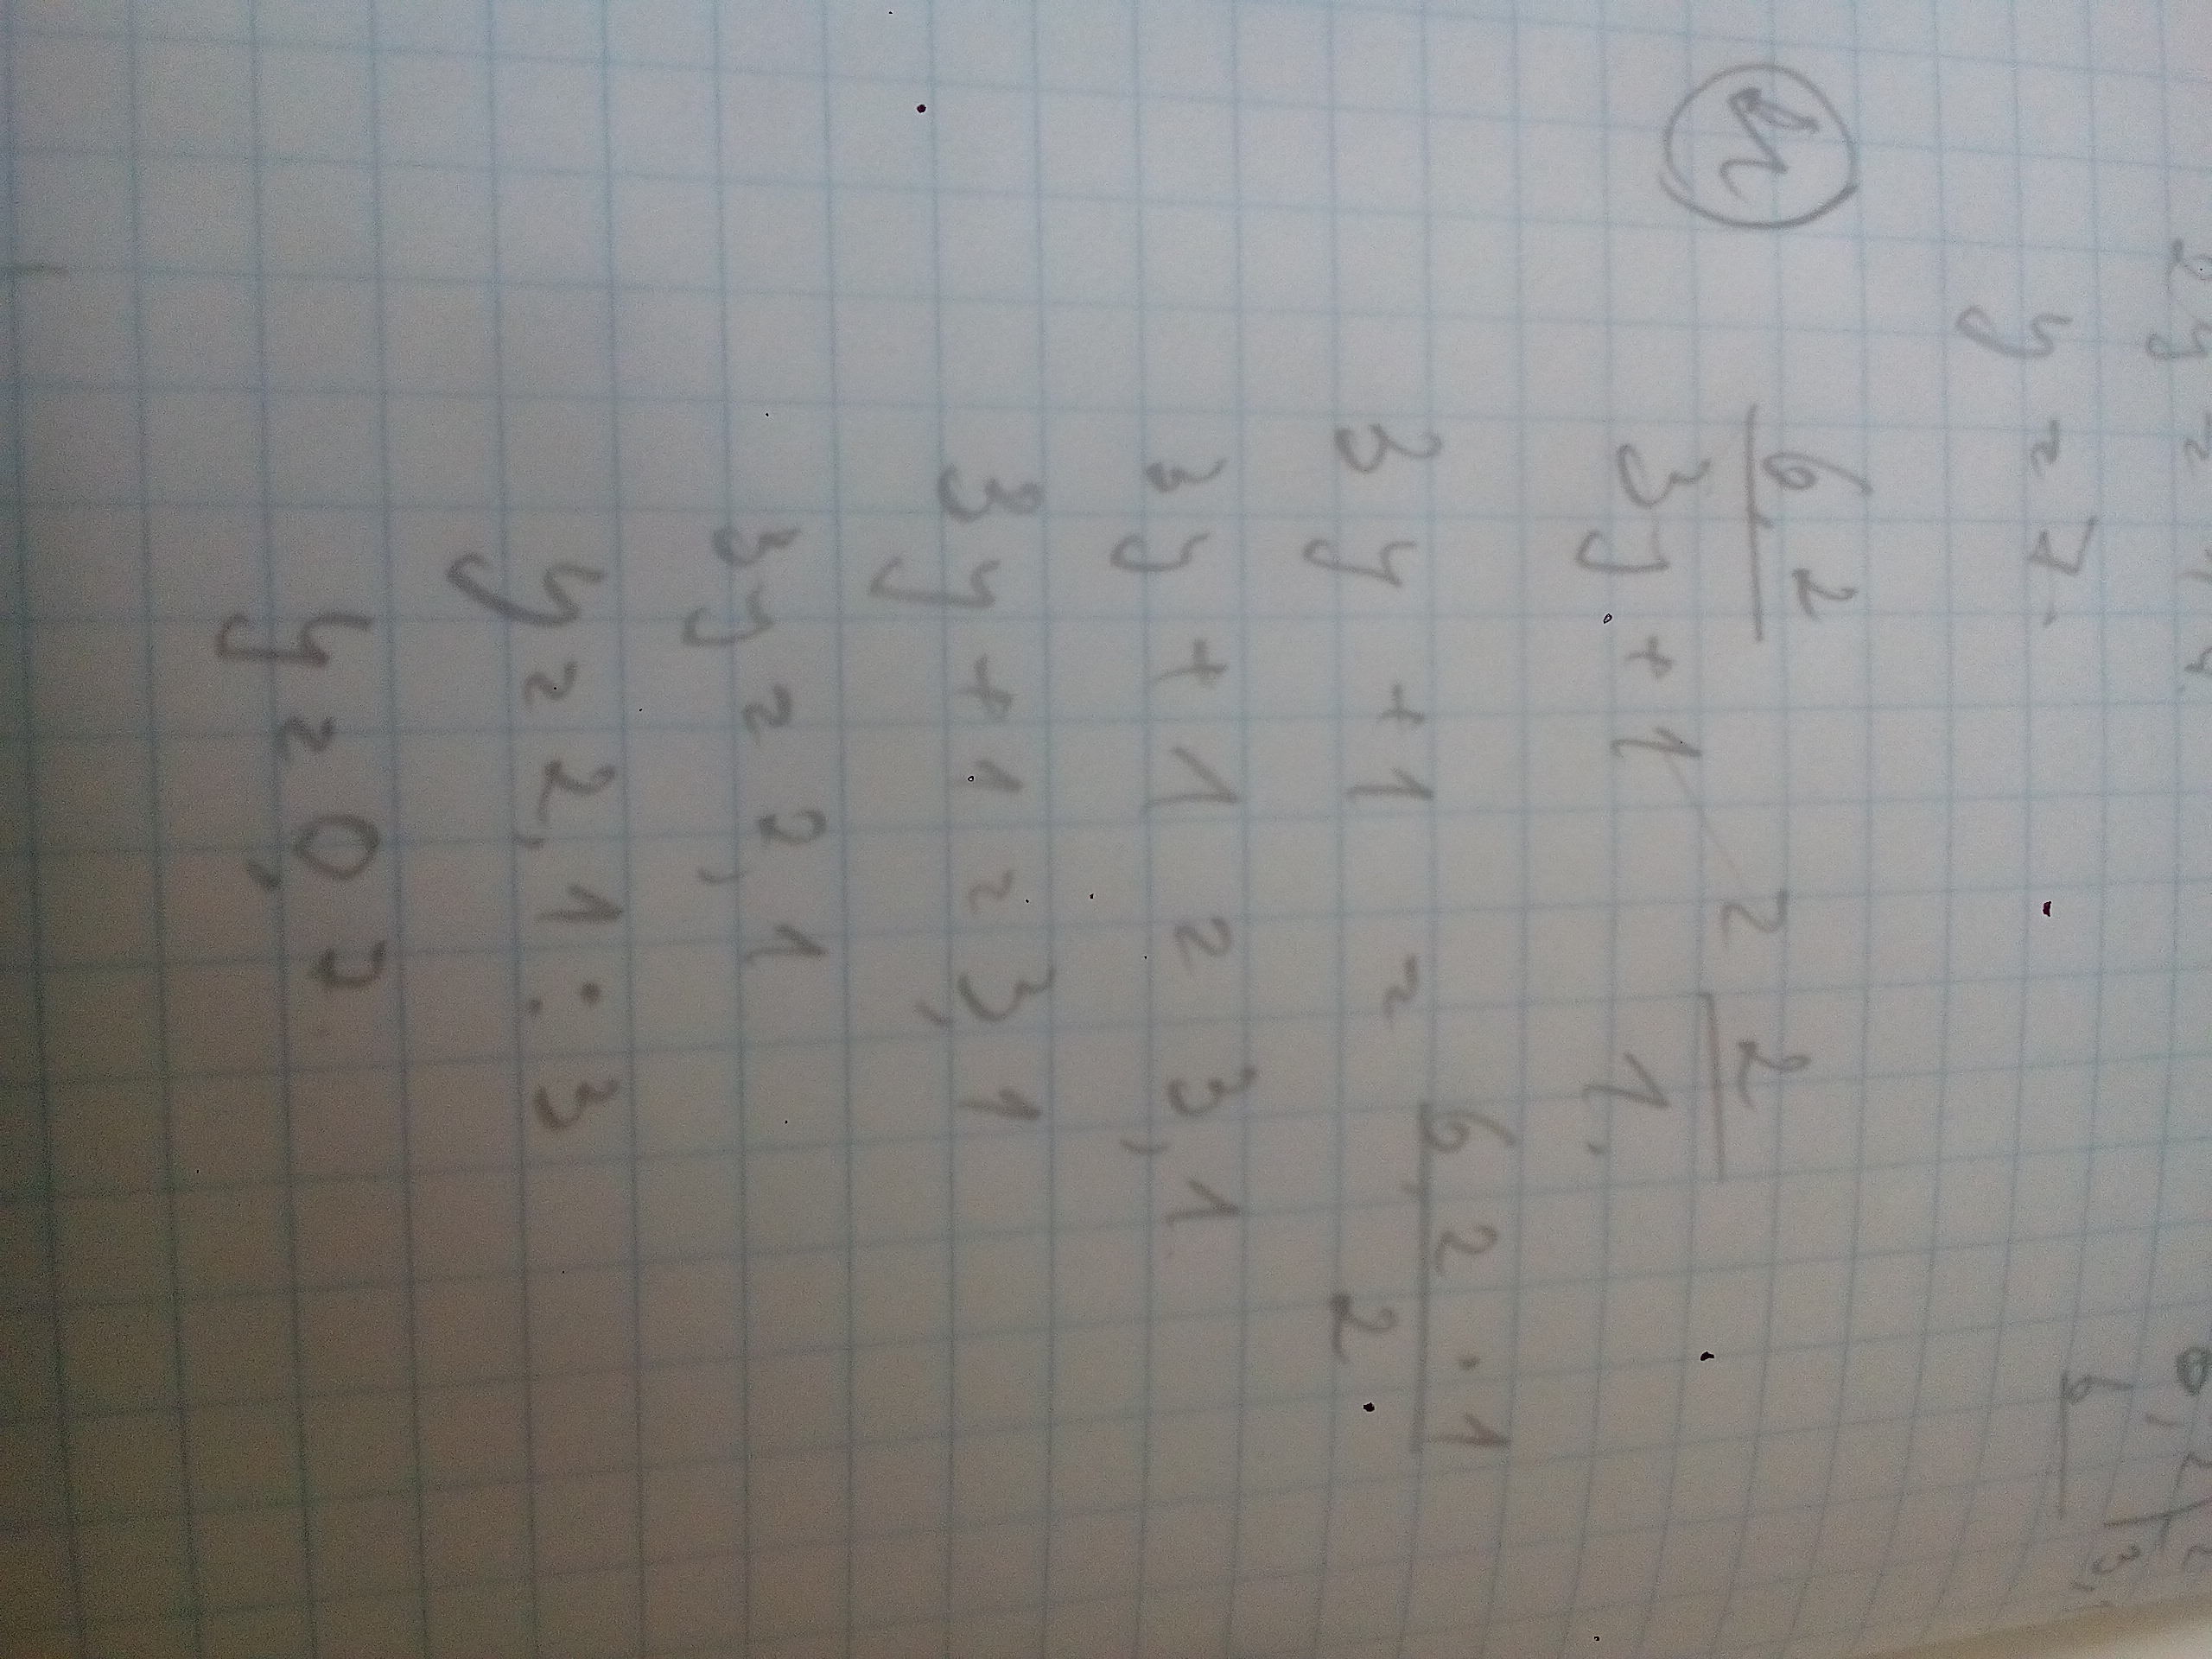 y = 7.
6,2 / 3y + 1 = 2 / 1.
3y + 1 = 6,2 · 1 / 2
3y + 1 = 3,1
3y + 1 = 3,1
3y = 2,1
y = 2,1 : 3
y = 0,7